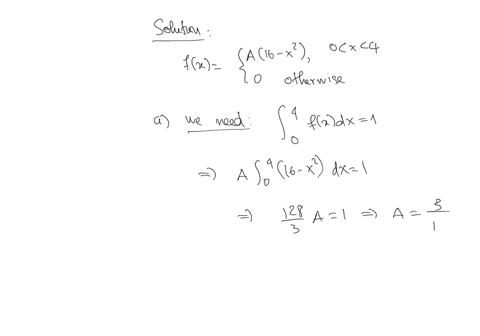 Solution:
f(x) = { A(16-x²), 0<x<4
0 otherwise
a) we need: ∫₀⁴ f(x)dx=1
⇒ A ∫₀⁴ (16-x²) dx=1
⇒ 128/3 A = 1 ⇒ A = 3/1